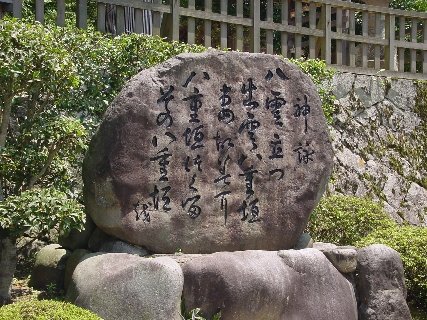 神詠
八雲立つ
出雲八重垣
八重垣作る
その八重垣